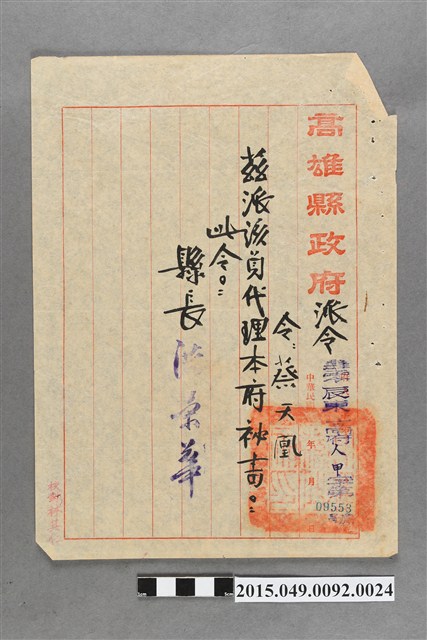 高雄縣政府派令
人甲
09553
中華民
年 月
令：蔡天凰
茲派該員代理本府秘書。
此令。
縣長 洪榮華
2015.049.0092.0024